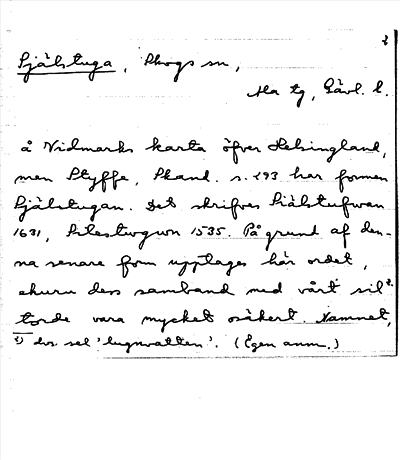 2
Själstuga, Skogs sn,
Ala tg, Gävl. l.
å Widmarks karta öfver Helsingland,
men Styffe, Skand. s. 293 har formen
Själstugan. Det skrifves Siälstufwan
1631, 1535. På grund af den-
na senare form upptages här ordet,
ehuru dess samband med vårt sil²⁾
torde vara mycket osäkert. Namnet,
²⁾ dvs sel 'lugnvatten'. (Egen anm.)